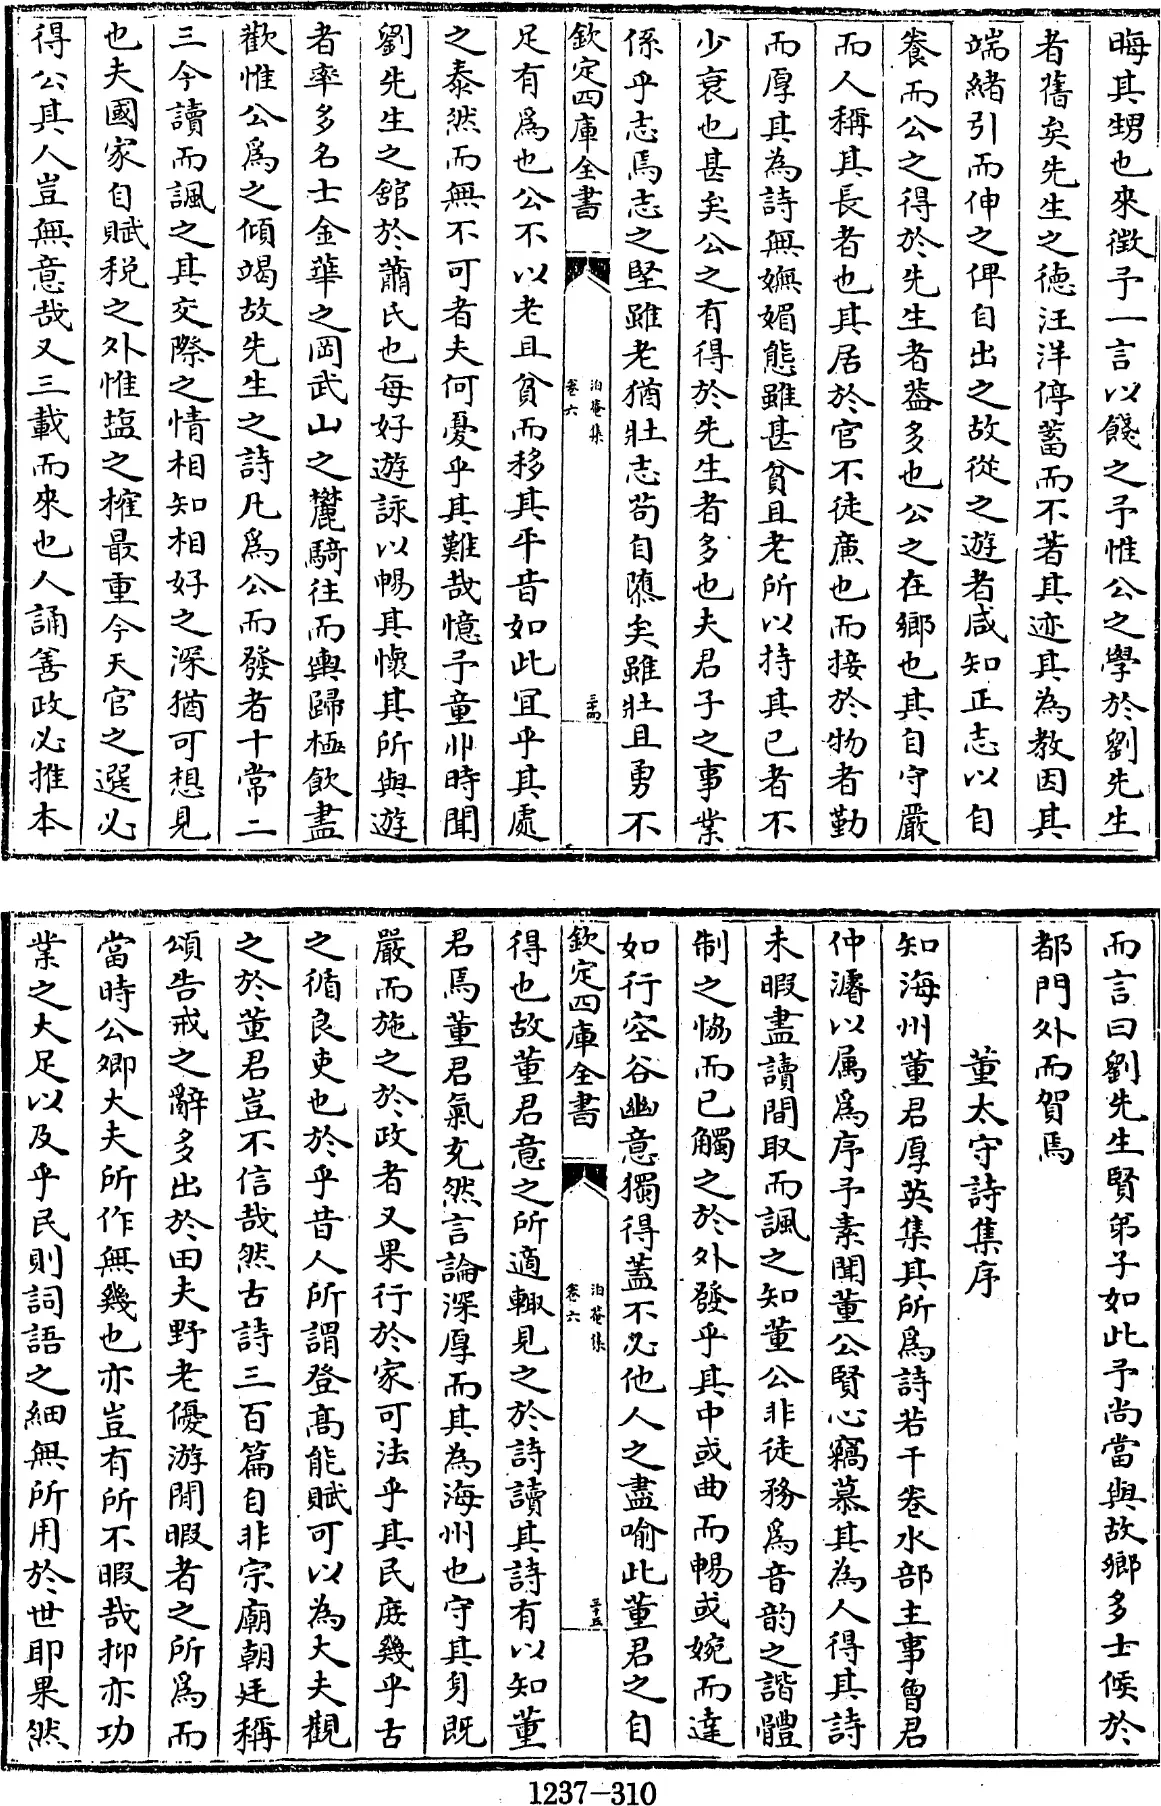 晦其甥也來徵予一言以餞之予惟公之學於劉先生
者舊矣先生之徳汪洋停蓄而不著其迹其為教因其
端緒引而伸之俾自出之故從之遊者咸知正志以自
養而公之得於先生者葢多也公之在鄉也其自守嚴
而人稱其長者也其居於官不徒廉也而接於物者勤
而厚其為詩無嫵媚態雖甚貧且老所以持其已者不
少衰也甚矣公之有得於先生者多也夫君子之事業
係乎志焉志之堅雖老猶壯志苟自隳矣雖壯且勇不
欽定四庫全書
泊菴集
卷六
三十四
足有為也公不以老且貧而移其平昔如此宜乎其處
之泰然而無不可者夫何憂乎其難哉憶予童丱時聞
劉先生之舘於蕭氏也每好遊詠以暢其懷其所與遊
者率多名士金華之岡武山之麓騎往而輿歸極飲盡
歡惟公為之傾竭故先生之詩凡為公而發者十常二
三今讀而諷之其交際之情相知相好之深猶可想見
也夫國家自賦税之外惟塩之榷最重今天官之選必
得公其人豈無意哉又三載而來也人誦善政必推本
而言曰劉先生賢弟子如此予尚當與故鄉多士候於
都門外而賀焉
董太守詩集序
知海州董君厚英集其所為詩若干卷水部主事曾君
仲濬以属為序予素聞董公賢心竊慕其為人得其詩
未暇盡讀間取而諷之知董公非徒務為音韵之諧體
制之恊而已觸之於外發乎其中或曲而暢或婉而達
如行空谷幽意獨得蓋不必他人之盡喻此董君之自
欽定四庫全書
泊菴集
卷六
三十五
得也故董君意之所適輙見之於詩讀其詩有以知董
君焉董君氣充然言論深厚而其為海州也守其身既
嚴而施之於政者又果行於家可法乎其民庶幾乎古
之循良吏也於乎昔人所謂登髙能賦可以為大夫觀
之於董君豈不信哉然古詩三百篇自非宗廟朝廷稱
頌告戒之辭多出於田夫野老優游閒暇者之所為而
當時公卿大夫所作無幾也亦豈有所不暇哉抑亦功
業之大足以及乎民則詞語之細無所用於世耶果然
1237-310